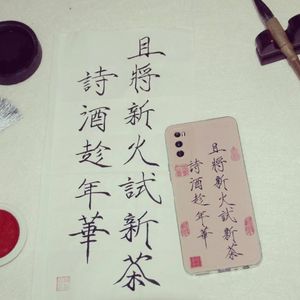 且將新火試新茶
詩酒趁年華
且將新火試新茶
詩酒趁年華